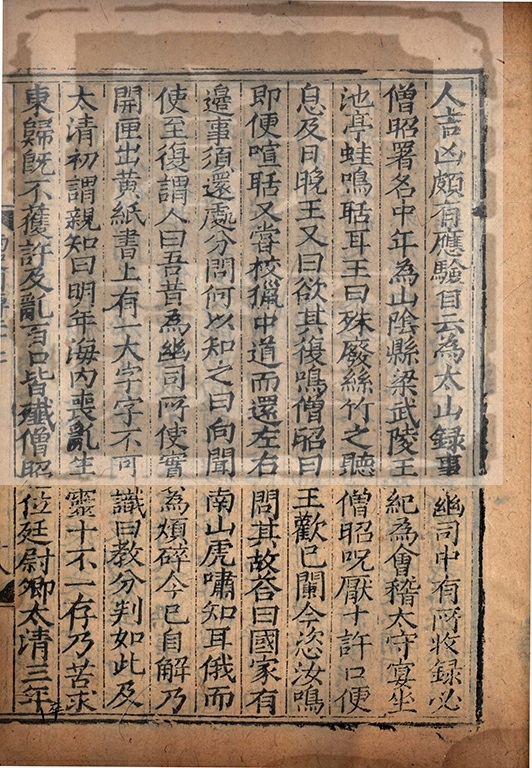 人吉凶頗有應驗自云為太山録事幽司中有所收録必
僧昭署名中年為山陰縣梁武陵王紀為會稽太守宴坐
池亭蛙鳴聒耳王曰殊廢絲竹之聽僧昭呪厭十許口便
息及日晚王又曰欲其復鳴僧昭曰王歡已闌今恣汝鳴
即便喧聒又嘗校獵中道而還左右問其故荅曰國家有
邊事須還處分問何以知之曰向聞南山虎嘯知耳俄而
使至復謂人曰吾昔為幽司所使實為煩碎今已自解乃
開匣出黄紙書上有一大字字不可識曰教分判如此及
太清初謂親知曰明年海内喪亂生靈十不一存乃苦求
東歸既不獲許及亂百口皆殲僧昭位廷尉卿太清三年卒